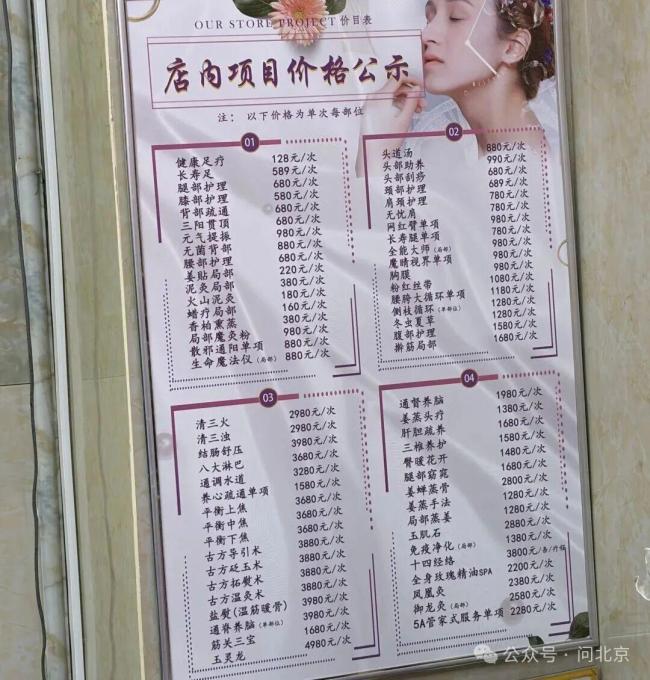 OUR STORE PROJECT 价目表
店内项目价格公示
注： 以下价格为单次每部位
01
健康足疗 128元/次
长寿足 589元/次
腿部护理 680元/次
膝部护理 580元/次
背部疏通 680元/次
三阳贯顶 680元/次
元气提振 980元/次
无菌背部 880元/次
腰部护理 680元/次
姜贴局部 220元/次
泥灸局部 380元/次
火山泥灸 180元/次
蜡疗局部 160元/次
香柏熏蒸 380元/次
局部魔灸粉 980元/次
散邪通阳单项 880元/次
生命魔法仪(局部) 880元/次
02
头道汤 880元/次
头部助养 990元/次
头部刮痧 680元/次
颈部护理 689元/次
肩颈护理 780元/次
无忧肩 980元/次
网红臂单项 780元/次
长寿腿单项 780元/次
全能大师(局部) 980元/次
魔睛视界单项 980元/次
胸膜 980元/次
粉红丝带 1080元/次
腰胯大循环单项 1180元/次
侧枝循环(单部位) 1280元/次
冬虫夏草 1280元/次
腹部护理 1580元/次
擀筋局部 1680元/次
03
清三火 2980元/次
清三浊 2980元/次
结肠舒压 3980元/次
八大淋巴 3680元/次
通调水道 3280元/次
养心疏通单项 1580元/次
平衡上焦 3680元/次
平衡中焦 3680元/次
平衡下焦 3680元/次
古方导引术 3880元/次
古方砭玉术 3880元/次
古方拓熨术 3880元/次
古方温灸术 3880元/次
盐熨(温筋暖骨) 3980元/次
通脊养脑(单部位) 3980元/次
筋关三宝 1680元/次
玉灵龙 4980元/次
04
通督养脑 1980元/次
姜蒸头疗 1380元/次
肝胆疏养 1680元/次
三椎养护 1580元/次
臀暖花开 1480元/次
腿部窈窕 1680元/次
姜蝉蒸骨 2800元/次
姜蒸手法 1280元/次
局部蒸姜 1280元/次
玉肌石 2880元/次
免疫净化(局部) 1380元/次
十四经络 3800元/条/疗程
全身玫瑰精油SPA 2200元/次
凤凰灸 2380元/次
御龙灸(局部) 2580元/次
5A管家式服务单项 2280元/次
公众号·问北京